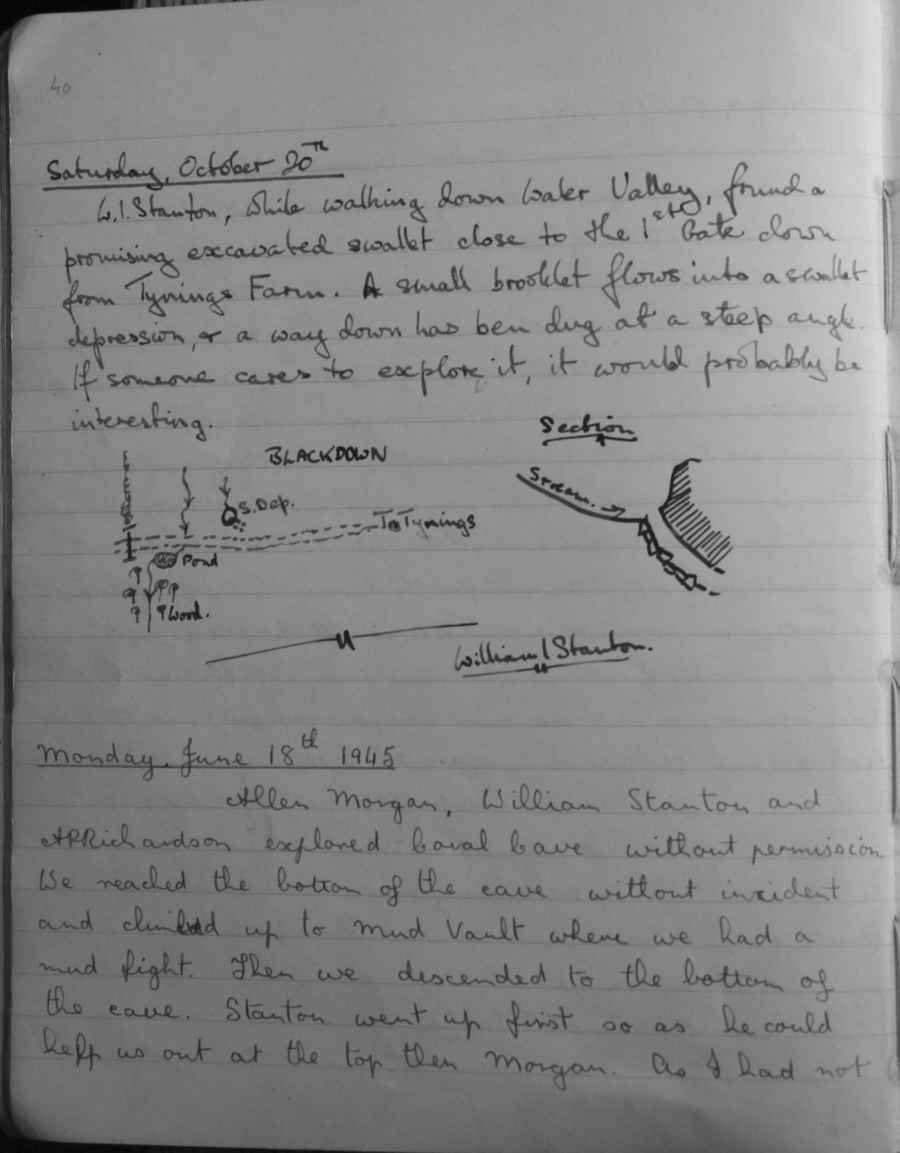 40
Saturday, October 20th
W.I. Stanton, while walking down Water Valley, found a
promising excavated swallet close to the 1st Gate down
from Tynings Farm. A small brooklet flows into a swallet
depression, & a way down has ben dug at a steep angle.
If someone cares to explore it, it would probably be
interesting.
Section
BLACKDOWN
Stream.
S. Dep.
To Tynings
Pond
Wood.
William I Stanton.
Monday. June 18th 1945
Allen Morgan, William Stanton and
APRichardson explored Goral Cave without permission
We reached the bottom of the cave without incident
and climbed up to Mud Vault where we had a
mud fight. Then we descended to the bottom of
the cave. Stanton went up first so as he could
help us out at the top then Morgan. As I had not